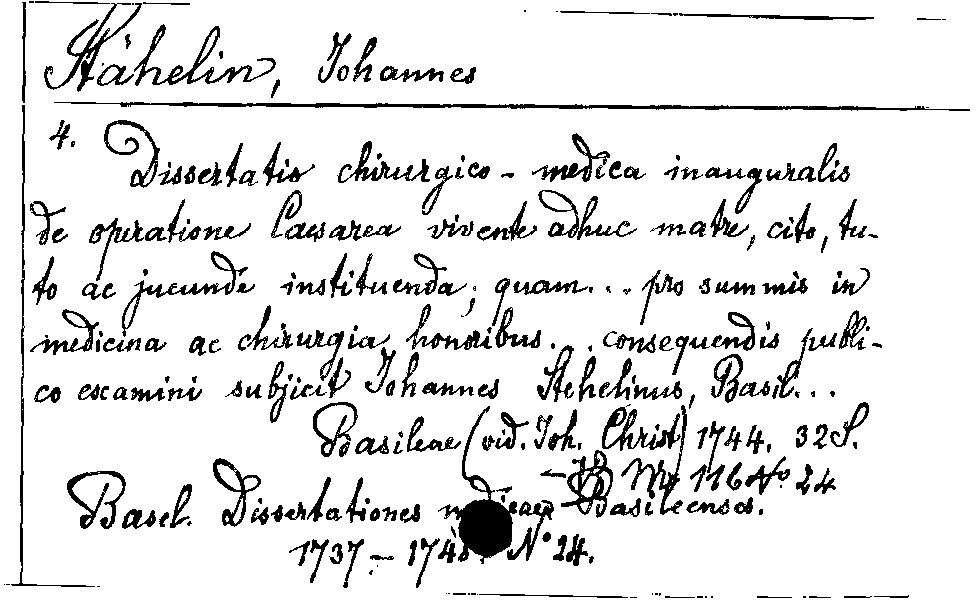 Stähelin, Johannes
4.
Dissertatio chirurgico-medica inauguralis
de operatione Caesarea vivente adhuc matre, cito, tu-
to ac jucunde instituenda, quam... pro summis in
medicina ac chirurgia honoribus... consequendis publi-
co examini subjicit Johannes Stehelinus, Basil...
Basileae (vid. Joh. Christ) 1744. 32 S.
116 No 24
Basel. Dissertationes medicae Basileenses.
1737 – 1748. No 24.